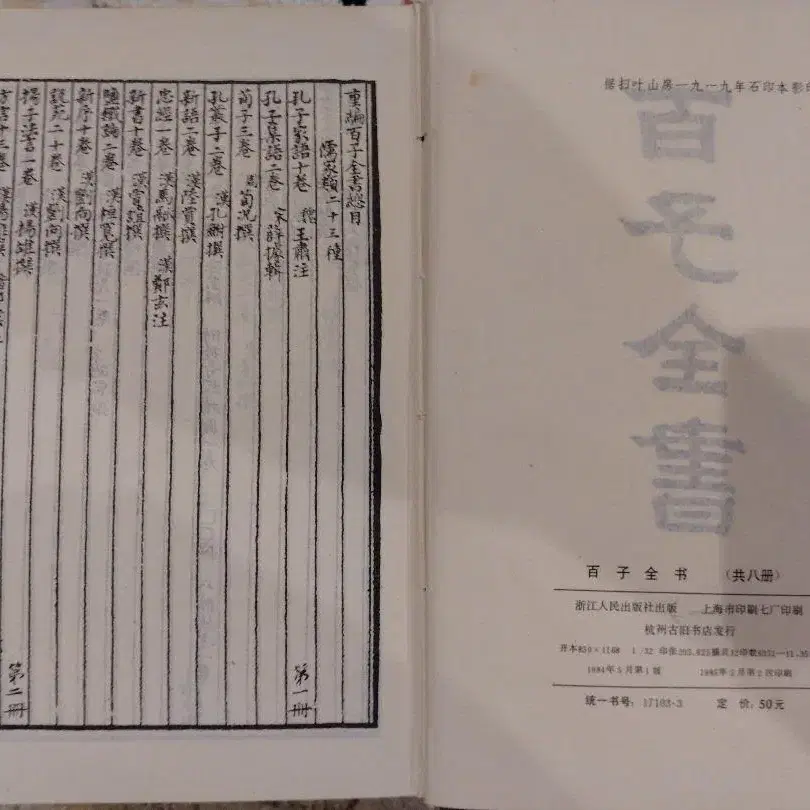 据扫叶山房一九一九年石印本影
百子全書
百子全书 （共八册）
浙江人民出版社出版 上海市印刷七厂印刷
杭州古旧书店发行
开本850×1168 1/32 印张203.625插页32印数6351—11,35
1984年5月第1版 1985年3月第2次印刷
统一书号：17103·3 定价：50元
重編百子全書總目
儒家類二十三種
孔子家語十卷 魏王肅注 第一冊
孔子集語二卷 宋薛據輯
荀子三卷 周荀况撰
孔叢子二卷 漢孔鮒撰
新語二卷 漢陸賈撰
忠經一卷 漢馬融撰 漢鄭玄注
新書十卷 漢賈誼撰
鹽鐵論二卷 漢桓寬撰
新序十卷 漢劉向撰
說苑二十卷 漢劉向撰
揚子法言一卷 漢揚雄撰 第二冊
方言十三卷 漢揚雄撰